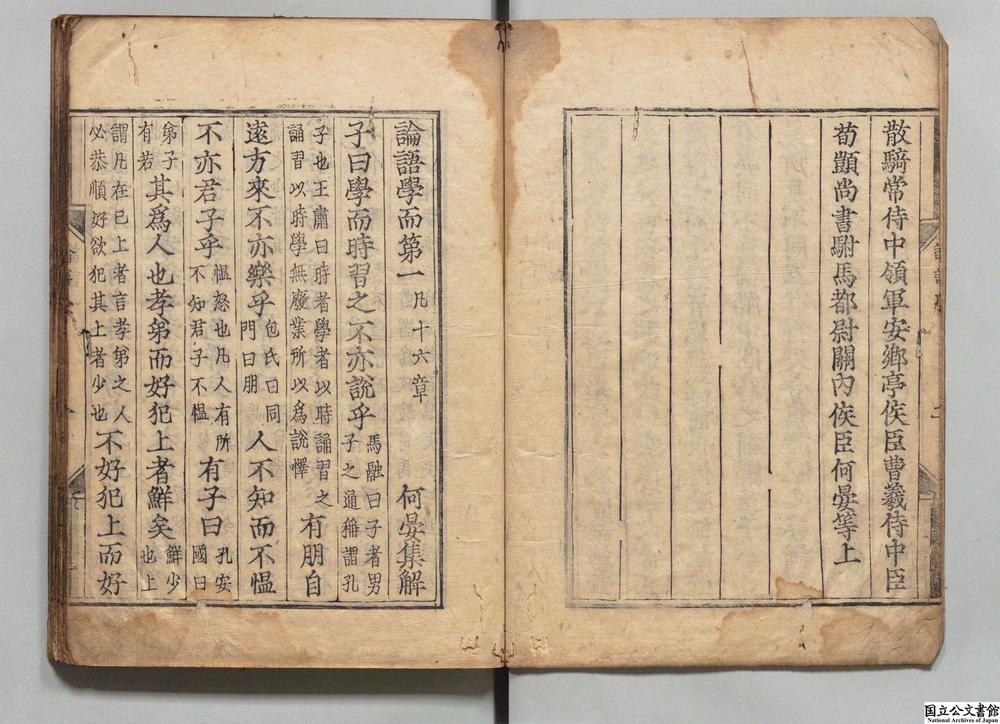 散騎常侍中領軍安鄉亭侯臣曹羲侍中臣
荀顗尚書駙馬都尉關內侯臣何晏等上
論語學而第一 凡十六章 何晏集解
子曰學而時習之不亦說乎 馬融曰子者男子之通稱謂孔
子也王肅曰時者學者以時誦習之誦習以時學無廢業所以爲說懌 有朋自
遠方來不亦樂乎 包氏曰同門曰朋 人不知而不慍
不亦君子乎 慍怒也凡人有所不知君子不慍 有子曰 孔安國曰
弟子有若 其爲人也孝弟而好犯上者鮮矣 鮮少也上
謂凡在己上者言孝弟之人必恭順好欲犯其上者少也 不好犯上而好
国立公文書館
National Archives of Japan